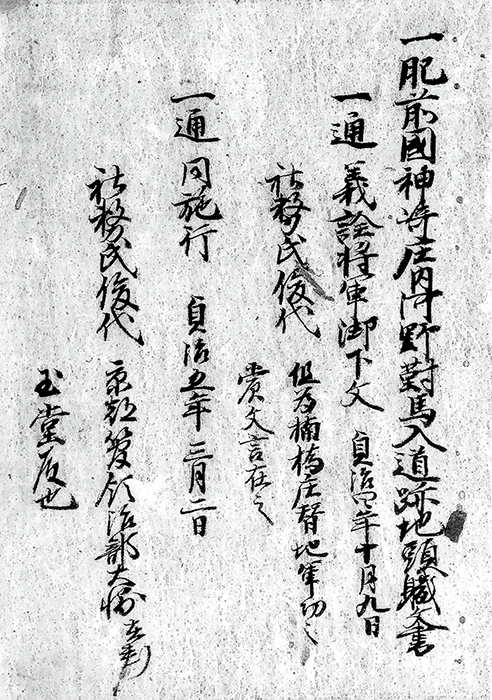 一肥前國神崎庄内小野對馬入道跡地頭職文書
一通 義詮將軍御下文 貞治四年十月九日
社務氏俊代 但為楠橋庄替地軍功之
賞文言在之
一通 同施行 貞治五年二月二日
社務氏俊代 京都管領治部大輔在判
玉堂殿也